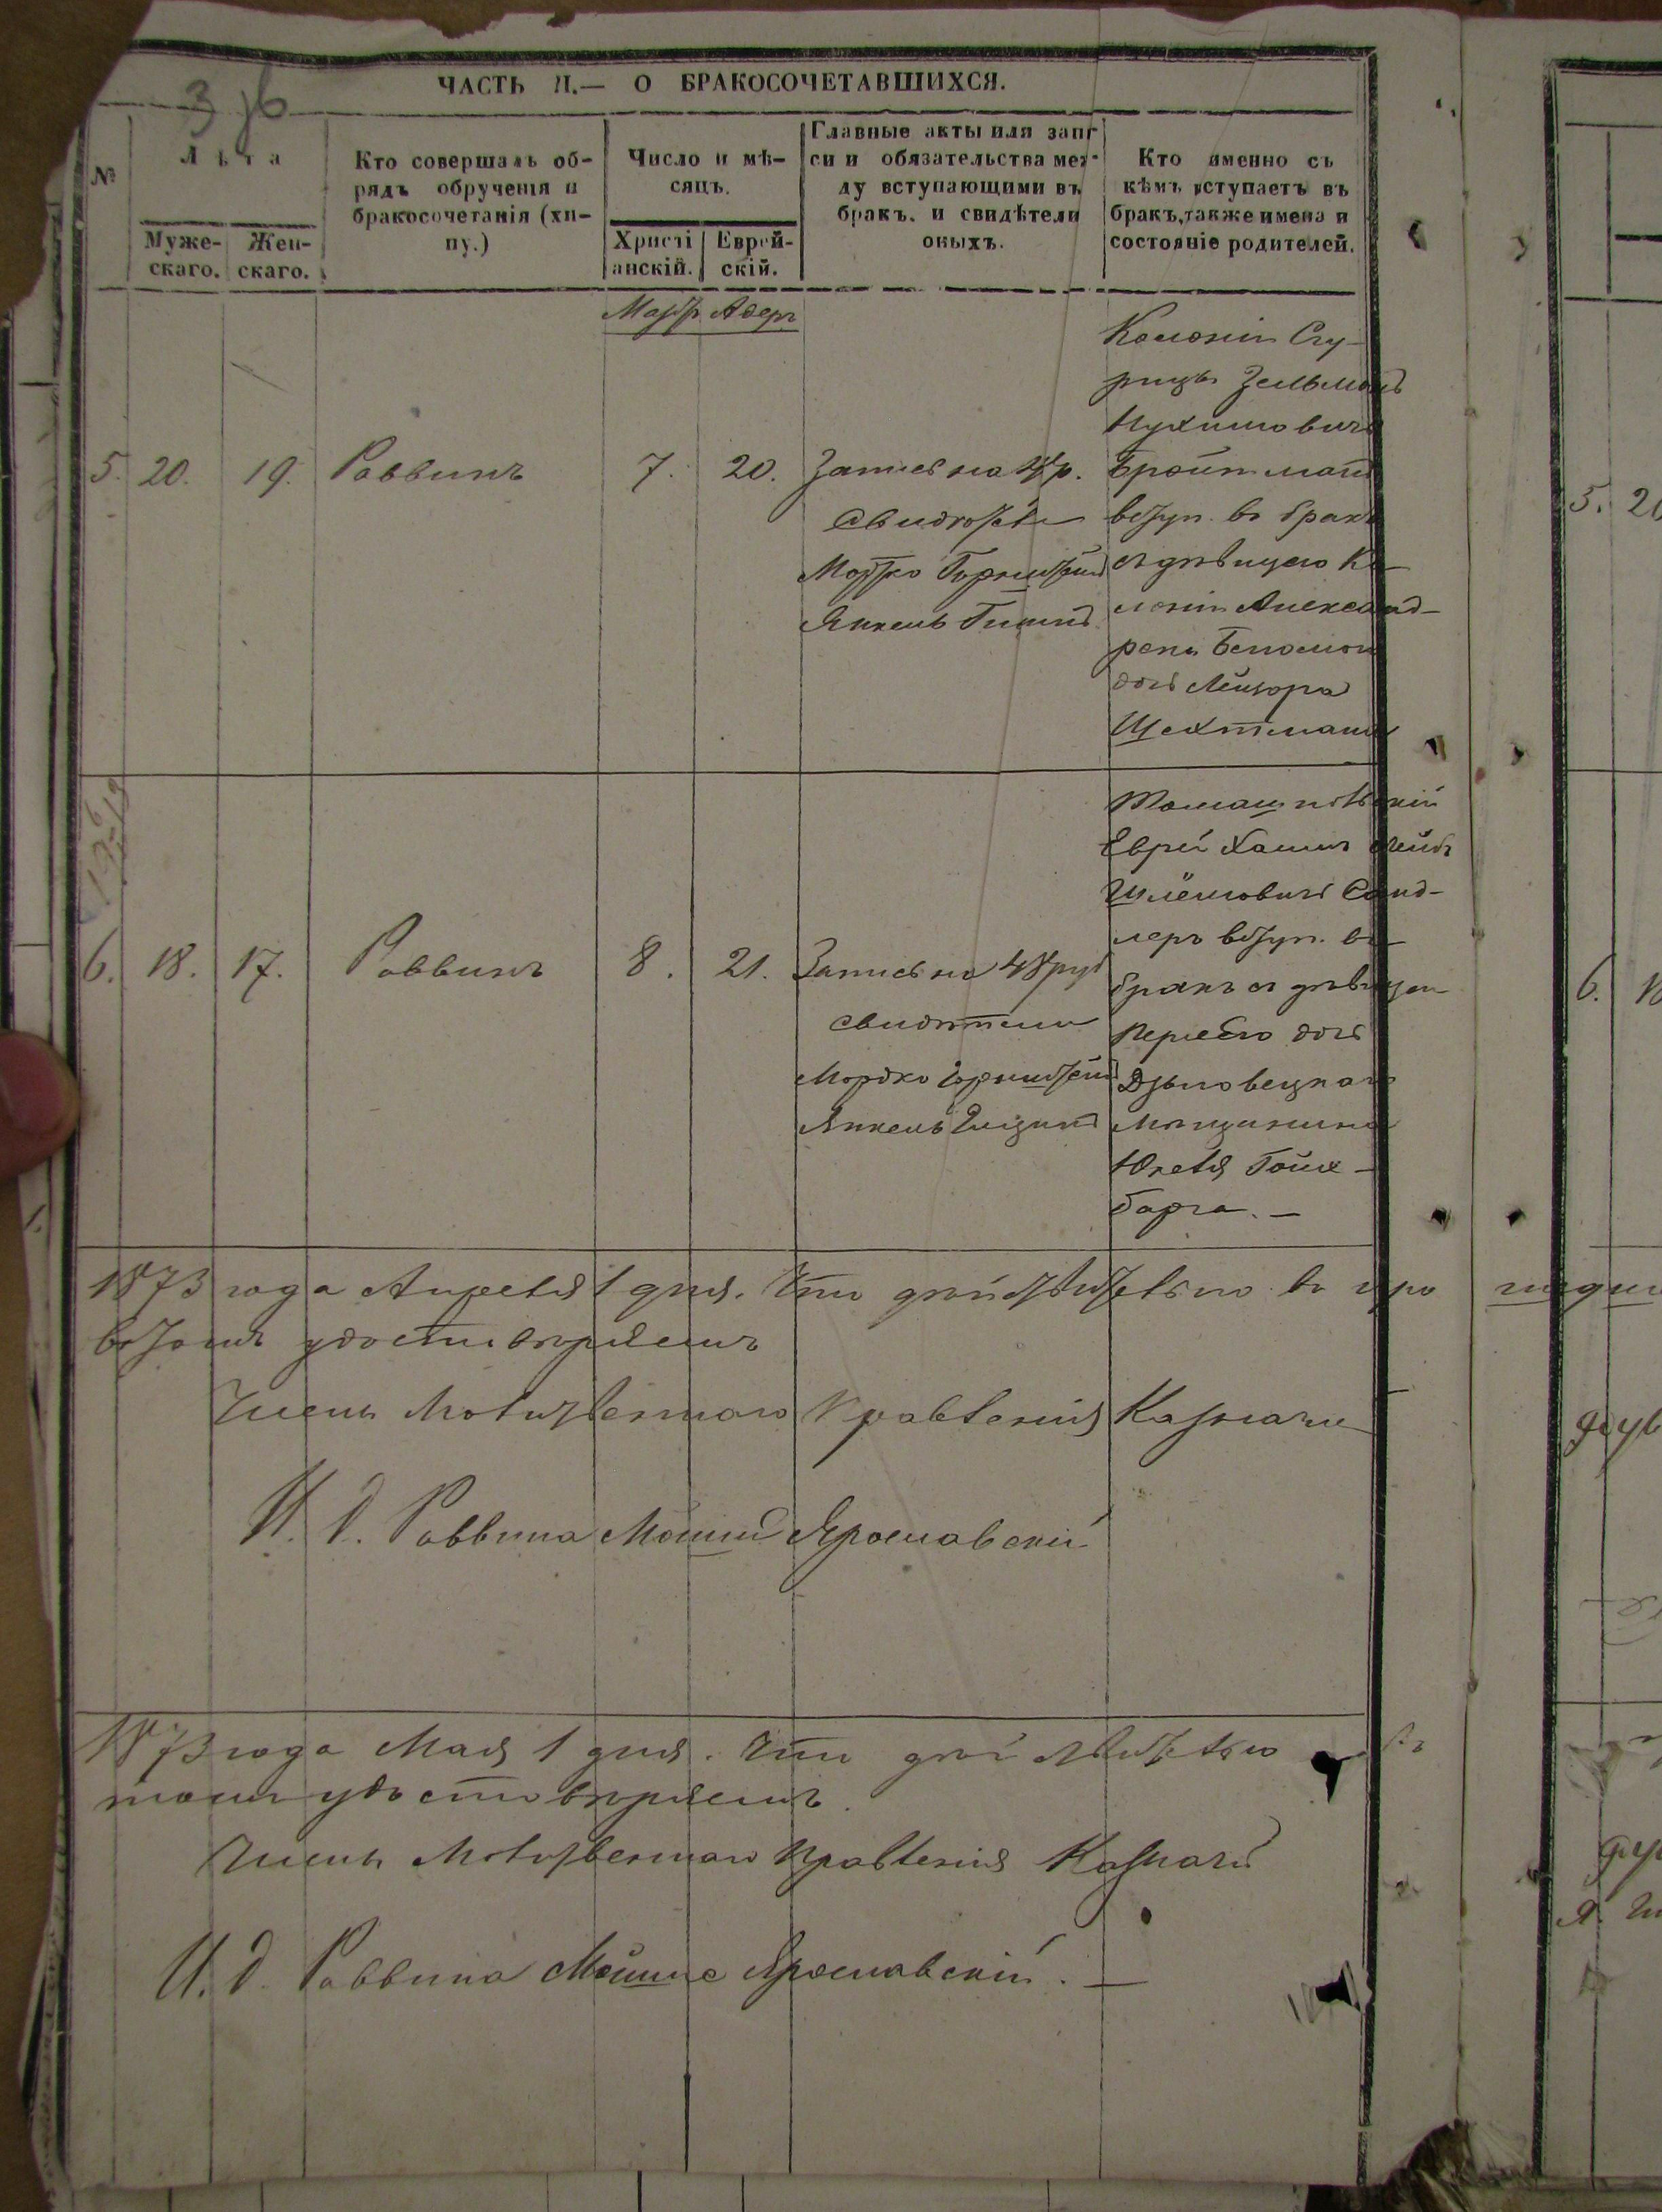 ЧАСТЬ II.— О БРАКОСОЧЕТАВШИХСЯ.
№
Лѣта
Муже-
скаго.
Жен-
скаго.
Кто совершалъ об-
рядъ обрученія и
бракосочетанія (хи-
пу.)
Число и мѣ-
сяцъ.
Христі
анскій.
Еврей-
скій.
Главные акты или запи
си и обязательства меж-
ду вступающими въ
бракъ. и свидѣтели
оныхъ.
Кто именно съ
кѣмъ вступаетъ въ
бракъ, также имена и
состояніе родителей.
Мартъ Адеръ
5. 20. 19. Раввинъ 7. 20.
Запись на 48 р.
Свидѣтели
Мордко
Янкель
Колоніи Сту-
рицы Зельманъ
Нухимовичъ
Бройтманъ
вступ. въ бракъ
съ дѣвицею Ко-
лоніи Александ-
рени дочь Лейзора
Шехтмана
6. 18. 17. Раввинъ 8. 21.
Запись на 48 руб
свидѣтели
Мордко
Янкель
Томашпольскій
Еврей Хаимъ Лейбъ
Шлёмовичъ Санд-
леръ вступ. въ
бракъ съ дѣвицею
Перлею дочь
мѣщанина
Юкеля Гольд-
барга. —
1873 года Апрѣля 1 дня. Что дѣйствительно въ
въ томъ удостовѣряемъ
Членъ Молитвеннаго Правленія Казначей
И. д. Раввина Мошко Ярославскій
1873 года Мая 1 дня. Что дѣйствительно въ
томъ удостовѣряемъ.
Членъ Молитвеннаго Правленія Казначей
И. д. Раввина Мошко Ярославскій. —
5. 20
6.